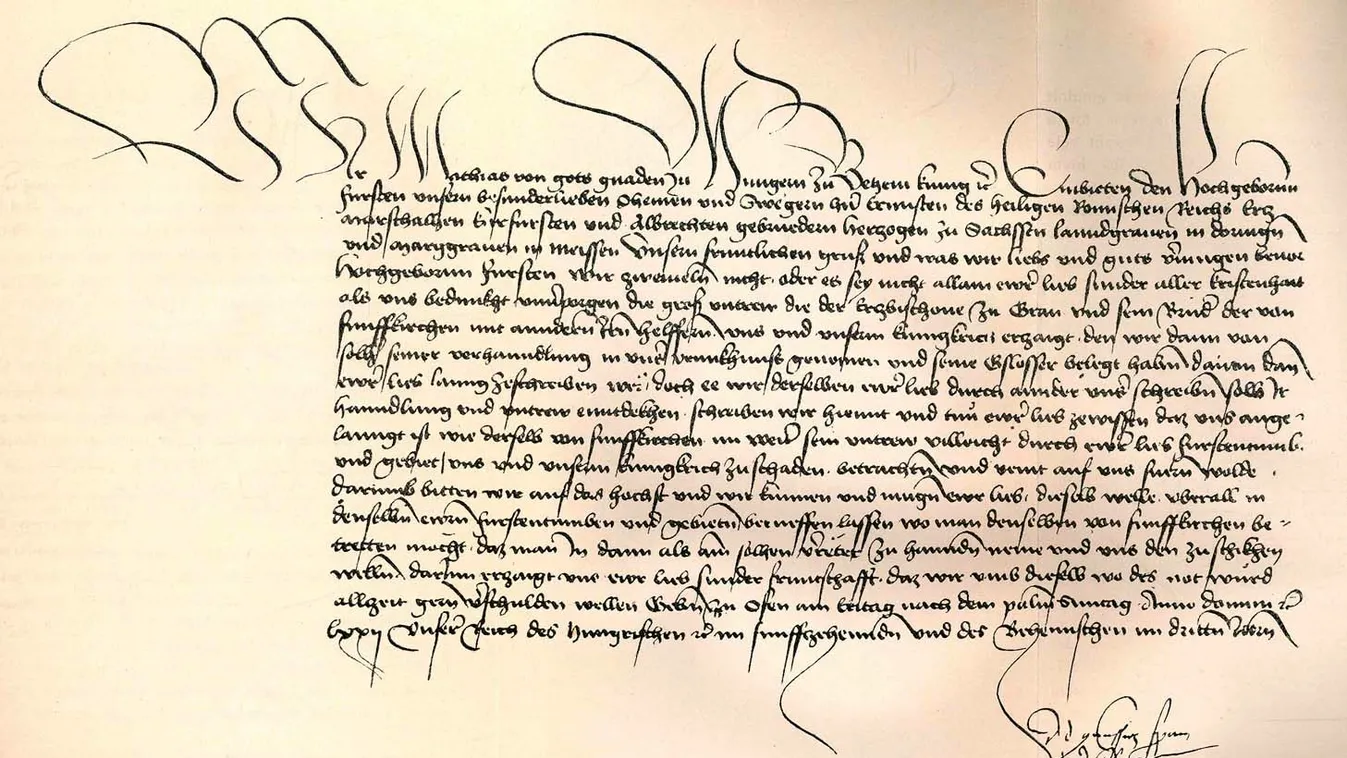 Wir Mathias von gots gnaden zu Hungern zu Behem kunig etc Embieten den Hochgeborun
fursten unsern besunderlieben Ohemen und Swegern hn Ernnsten des heiligen Romischen Reichs Ertz
marschalhen kurfursten und Albrechten gebruedern hertzogen zu Sachssen lanndgraven in doringn
und marggraven in meissen Unsern fruntlichen grus und was wir liebs und guts vermugen bevor
hochgeborun fursten wir zweiveln nicht oder es sey nicht allain ewr lieb sunder aller kristenhait
als uns bedunkht unverporgen die gros untrew die der Ertzbischove zu Gran und sein Bruder der von
funffkirchen mit anndern irn helffern uns und unserm kunigkreich erzaigt den wir dann von
solh seiner verhanndlung in und seine Gslosser belegt habn davon dan
ewr lieb lanng zeschreiben wer doch ee wir derselben ewr lieb durch annder uns schreibn solh ir
hanndlung und untrew enntdekhen schreiben wir hiemit und tun ewr lieb zewissen daz uns ange-
lanngt ist wie derselb von funffkirchen im willen sein untrew villeicht durch ewr lieb furstentumb
und gebiet uns und unserm kunigkreich zu schaden betrachtn und auf uns furn wolde
darumb bitten wir auf das hochst und wir kunnen und mugn ewr lieb dieselb welle uberall in
denselbn ewrn furstentumben und gebietn lassen wo man denselben von funffkirchen be-
tretten mocht daz man in dann als ain solhen vereter zu hanndn neme und uns den zuschikhen
welln darinn erzaigt uns ewr lieb sunder fruntschafft daz wir umb dieselb wo des not wurd
allzeit gern verschulden wellen Gebn zu Ofen am freitag nach dem palm Suntag Anno domini etc
lxxij Unser Reich des Hungrischen etc im funffzehenndn und des Behemischen im dritten Jorn